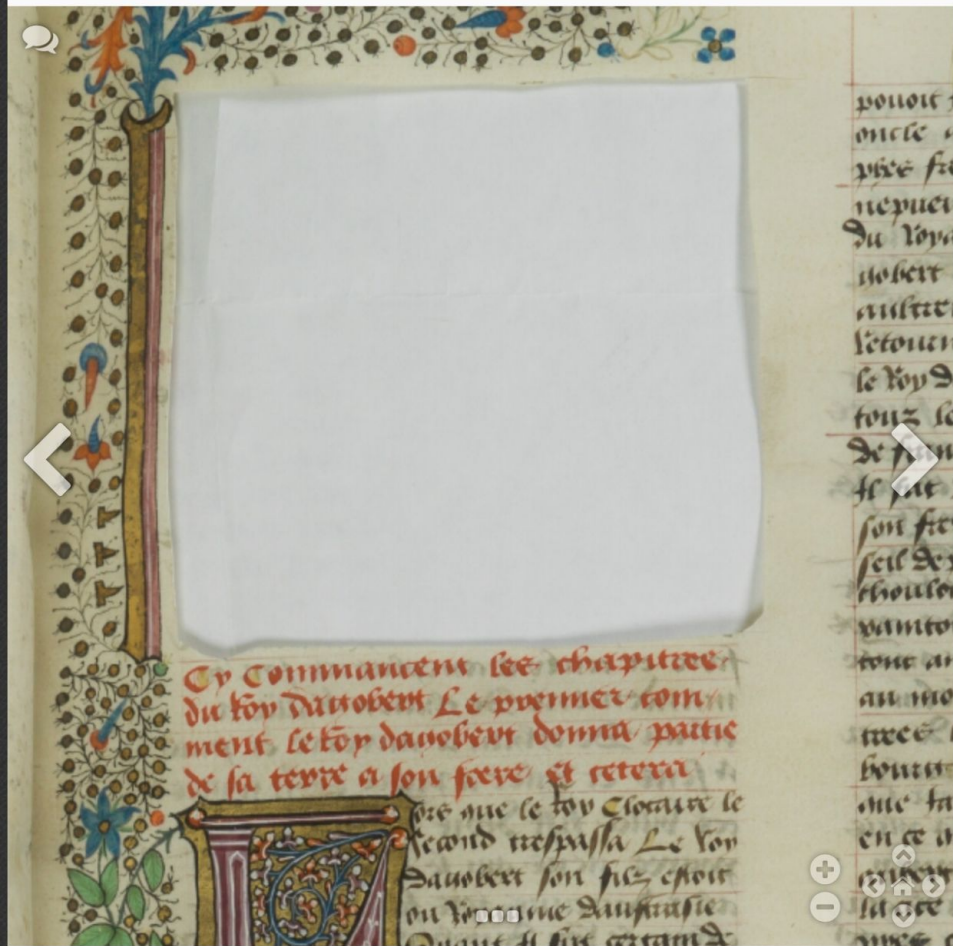 Cy Commancent les chapitres
du roy dagobert Le premier com
ment le roy dagobert donna partie
de sa terre a son frere et cetera
ors que le roy Clotaire le
second trespassa Le roy
dagobert son filz estoit
ou royaume daustrasie
Quant Il fut certain de
pouoit
oncle
pres
nepueu
du Roya
gobert
aultre
le Roy D
touz le
de
Il fut
son fre
seil de
tout au
au mo
trees
que la
en ce